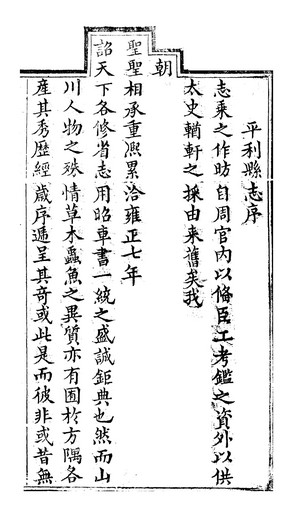 平利縣志序
志乘之作昉自周官内以俻臣工考鑑之資外以供
太史輶軒之採由来舊矣我
朝
聖聖相承重熈累洽雍正七年
詔天下各修省志用昭車書一統之盛誠鉅典也然而山
川人物之殊情草木蟲魚之異質亦有囿於方隅各
産其秀歴經歳序遞呈其奇或此是而彼非或昔無